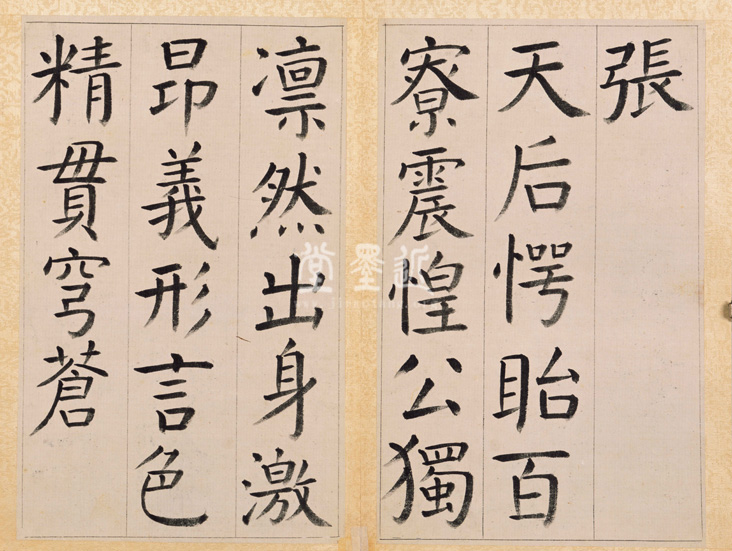 張
天后愕眙百
寮震惶公獨
凛然出身激
昂義形言色
精貫穹蒼
近墨堂